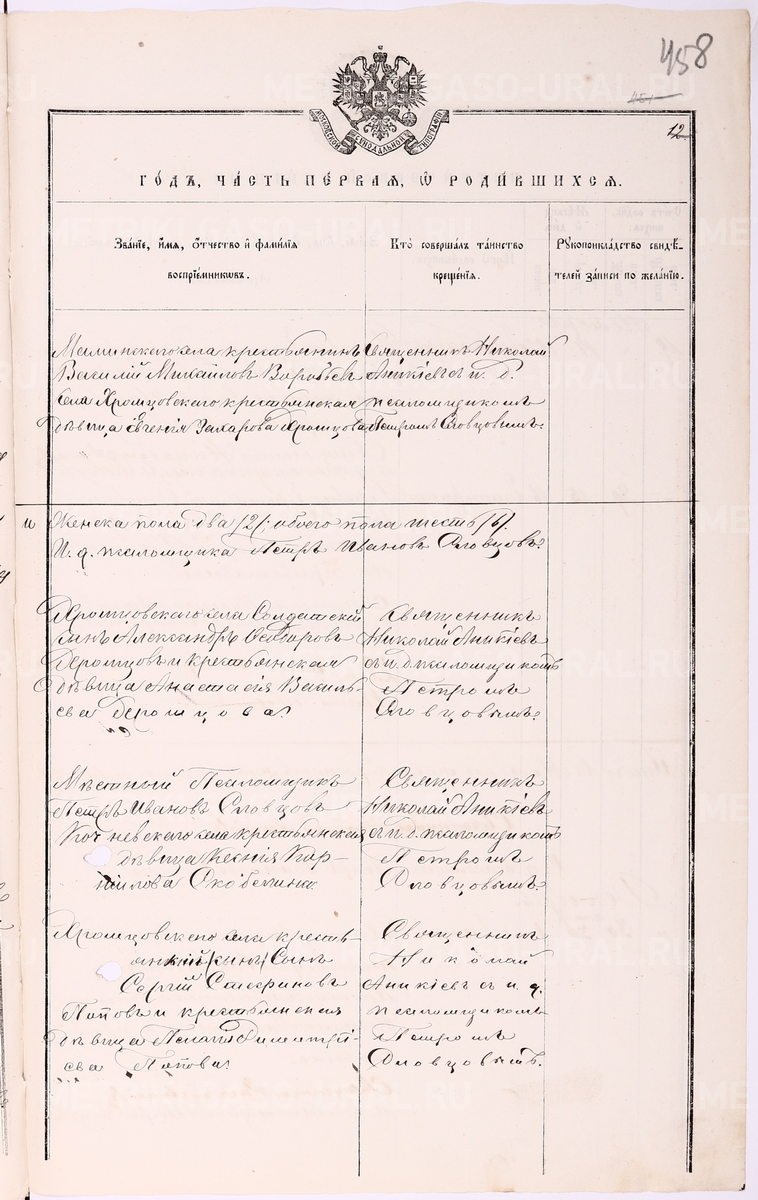 458
12
МОСКОВСКОЙ СѴНОДАЛЬНОЙ ТИПОГРАФІИ
ГО́ДЪ, ЧА́СТЬ ПЕ́РВАЯ, Ѡ҆ РОДИ́ВШИХСЯ.
ЗВА́НІЕ, И҆́МЯ, Ѻ҆́ТЧЕСТВО И҆ ФАМИ́ЛІЯ
ВОСПРІЕ́МНИКѠВЪ.
КТО̀ СОВЕРША́ЛЪ ТА́ИНСТВО
КРЕЩЕ́НІЯ.
РꙊКОПРИКЛА́ДСТВО СВИДѢ́-
ТЕЛЕЙ ЗА́ПИСИ ПО ЖЕЛА́НІЮ.
Маминскаго села крестьянинъ
Василій Михайловъ Воробьевъ
села Хромцовскаго крестьянская
дѣвица Евгенія Захарова Хромцова
Священникъ Николай
Аникіевъ съ и. д.
псаломщикомъ
Петромъ Словцовымъ.
и
Женска пола два /2/: обоего пола шесть /6/.
И. д. псаломщика Петръ Ивановъ Словцовъ.
Хромцовскаго села Солдатскій
сынъ Александръ
Хромцовъ и крестьянская
дѣвица Анастасія Василь-
ева Хромцова.
Священникъ
Николай Аникіевъ
съ и. д. псаломщикомъ
Петромъ
Словцовымъ.
Мѣстный Псаломщикъ
Петръ Ивановъ Словцовъ
Кочневскаго села крестьянская
дѣвица Ксенія Кор-
нилова
Священникъ
Николай Аникіевъ
съ и. д. псаломщикомъ
Петромъ
Словцовымъ.
Хромцовскаго села кресть-
янскій (сынъ) Сынъ
Сергій Стефановъ
Поповъ и крестьянская
дѣвица Пелагія Димитрі-
ева Попова.
Священникъ
Николай
Аникіевъ съ и. д.
псаломщикомъ
Петромъ
Словцовымъ.